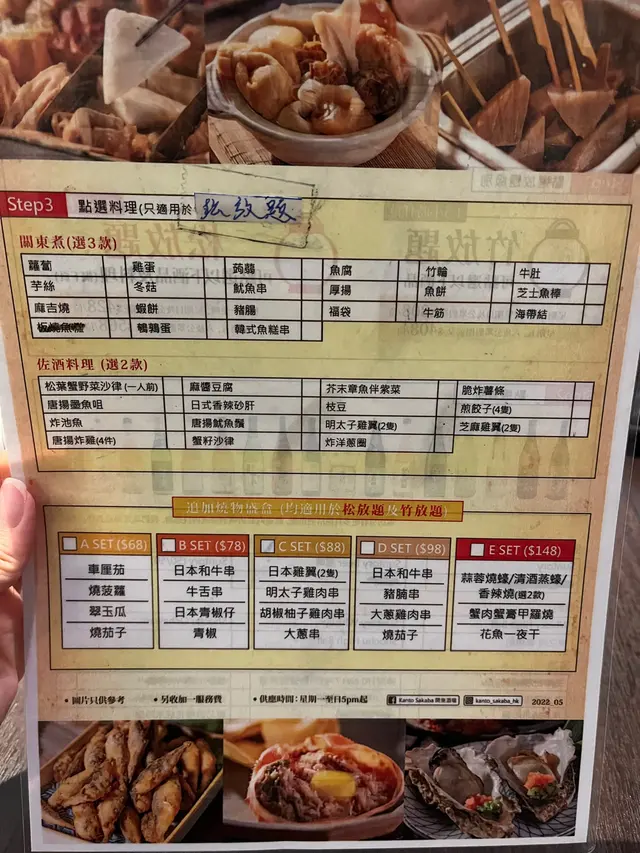 Step3 點選料理(只適用於 松放題
關東煮(選3款)
蘿蔔 雞蛋 蒟蒻 魚腐 竹輪 牛肚
芋絲 冬菇 魷魚串 厚揚 魚餅 芝士魚棒
麻吉燒 蝦餅 豬腸 福袋 牛筋 海帶結
鵪鶉蛋 韓式魚糕串
佐酒料理 (選2款)
松葉蟹野菜沙律 (一人前) 麻醬豆腐 芥末章魚伴紫菜 脆炸薯條
唐揚墨魚咀 日式香辣砂肝 枝豆 煎餃子(4隻)
炸池魚 唐揚魷魚鬚 明太子雞翼(2隻) 芝麻雞翼(2隻)
唐揚炸雞(4件) 蟹籽沙律 炸洋蔥圈
追加燒物盛盒 (均適用於松放題及竹放題)
A SET ($68) B SET ($78) C SET ($88) D SET ($98) E SET ($148)
車厘茄 日本和牛串 日本雞翼(2隻) 日本和牛串 蒜蓉燒蠔/清酒蒸蠔/
香辣燒(選2款)
燒菠蘿 牛舌串 明太子雞肉串 豬腩串
翠玉瓜 日本青椒仔 胡椒柚子雞肉串 大蔥雞肉串 蟹肉蟹膏甲羅燒
燒茄子 青椒 大蔥串 燒茄子 花魚一夜干
• 圖片只供參考 • 另收加一服務費 • 供應時間：星期一至日5pm起 Kanto Sakaba 關東酒場 kanto_sakaba_hk 2022_05